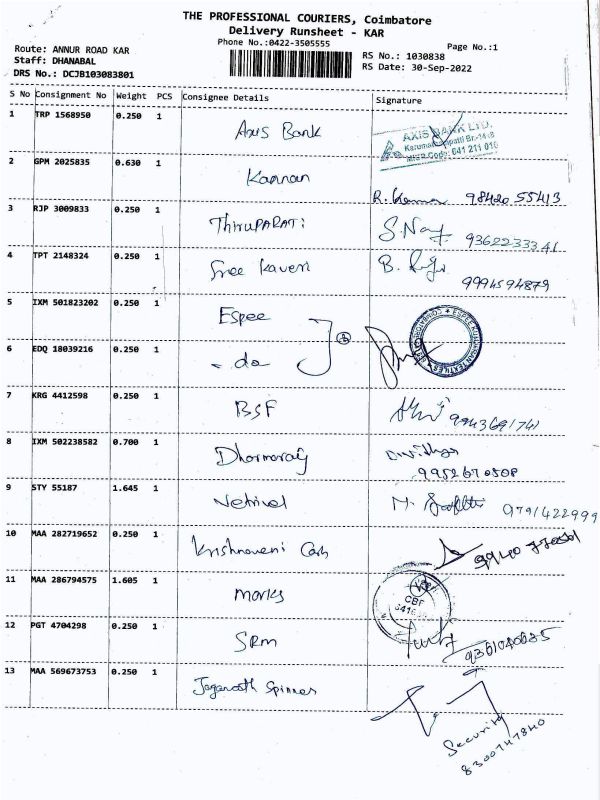 THE PROFESSIONAL COURIERS, Coimbatore
Delivery Runsheet - KAR
Phone No.:0422-3505555
Page No.:1
Route: ANNUR ROAD KAR
Staff: DHANABAL
DRS No.: DCJB103083801
RS No.: 1030838
RS Date: 30-Sep-2022
S No Consignment No Weight PCS Consignee Details Signature
1 TRP 1568950 0.250 1 Axis Bank
AXIS BANK LTD.
641 211 010
2 GPM 2025835 0.630 1 Kannan
98420 55413
3 RJP 3009833 0.250 1 ThiruPARATi
9362233341
4 TPT 2148324 0.250 1 Sree Kaveri
9994594879
5 IXM 501823202 0.250 1 Espee
6 EDQ 18039216 0.250 1 - do
7 KRG 4412598 0.250 1 BSF
9943691741
8 IXM 502238582 0.700 1 Dharmaraj
9952670508
9 STY 55187 1.645 1 Vetrivel
9791422999
10 MAA 282719652 0.250 1 Krishnaveni
11 MAA 286794575 1.605 1 marks
CBE
12 PGT 4704298 0.250 1 SRM
13 MAA 569673753 0.250 1 Jaganath Spinner
Security
8300747840